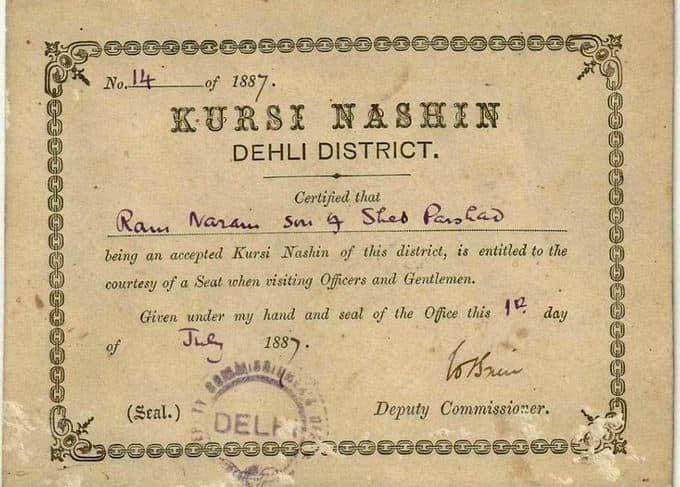 No. 14 of 1887.
KURSI NASHIN
DEHLI DISTRICT.
Certified that
Ram Narain son of Sheo Parshad
being an accepted Kursi Nashin of this district, is entitled to the
courtesy of a Seat when visiting Officers and Gentlemen.
Given under my hand and seal of the Office this 1st day
of July 1887.
(Seal.) Deputy Commissioner.